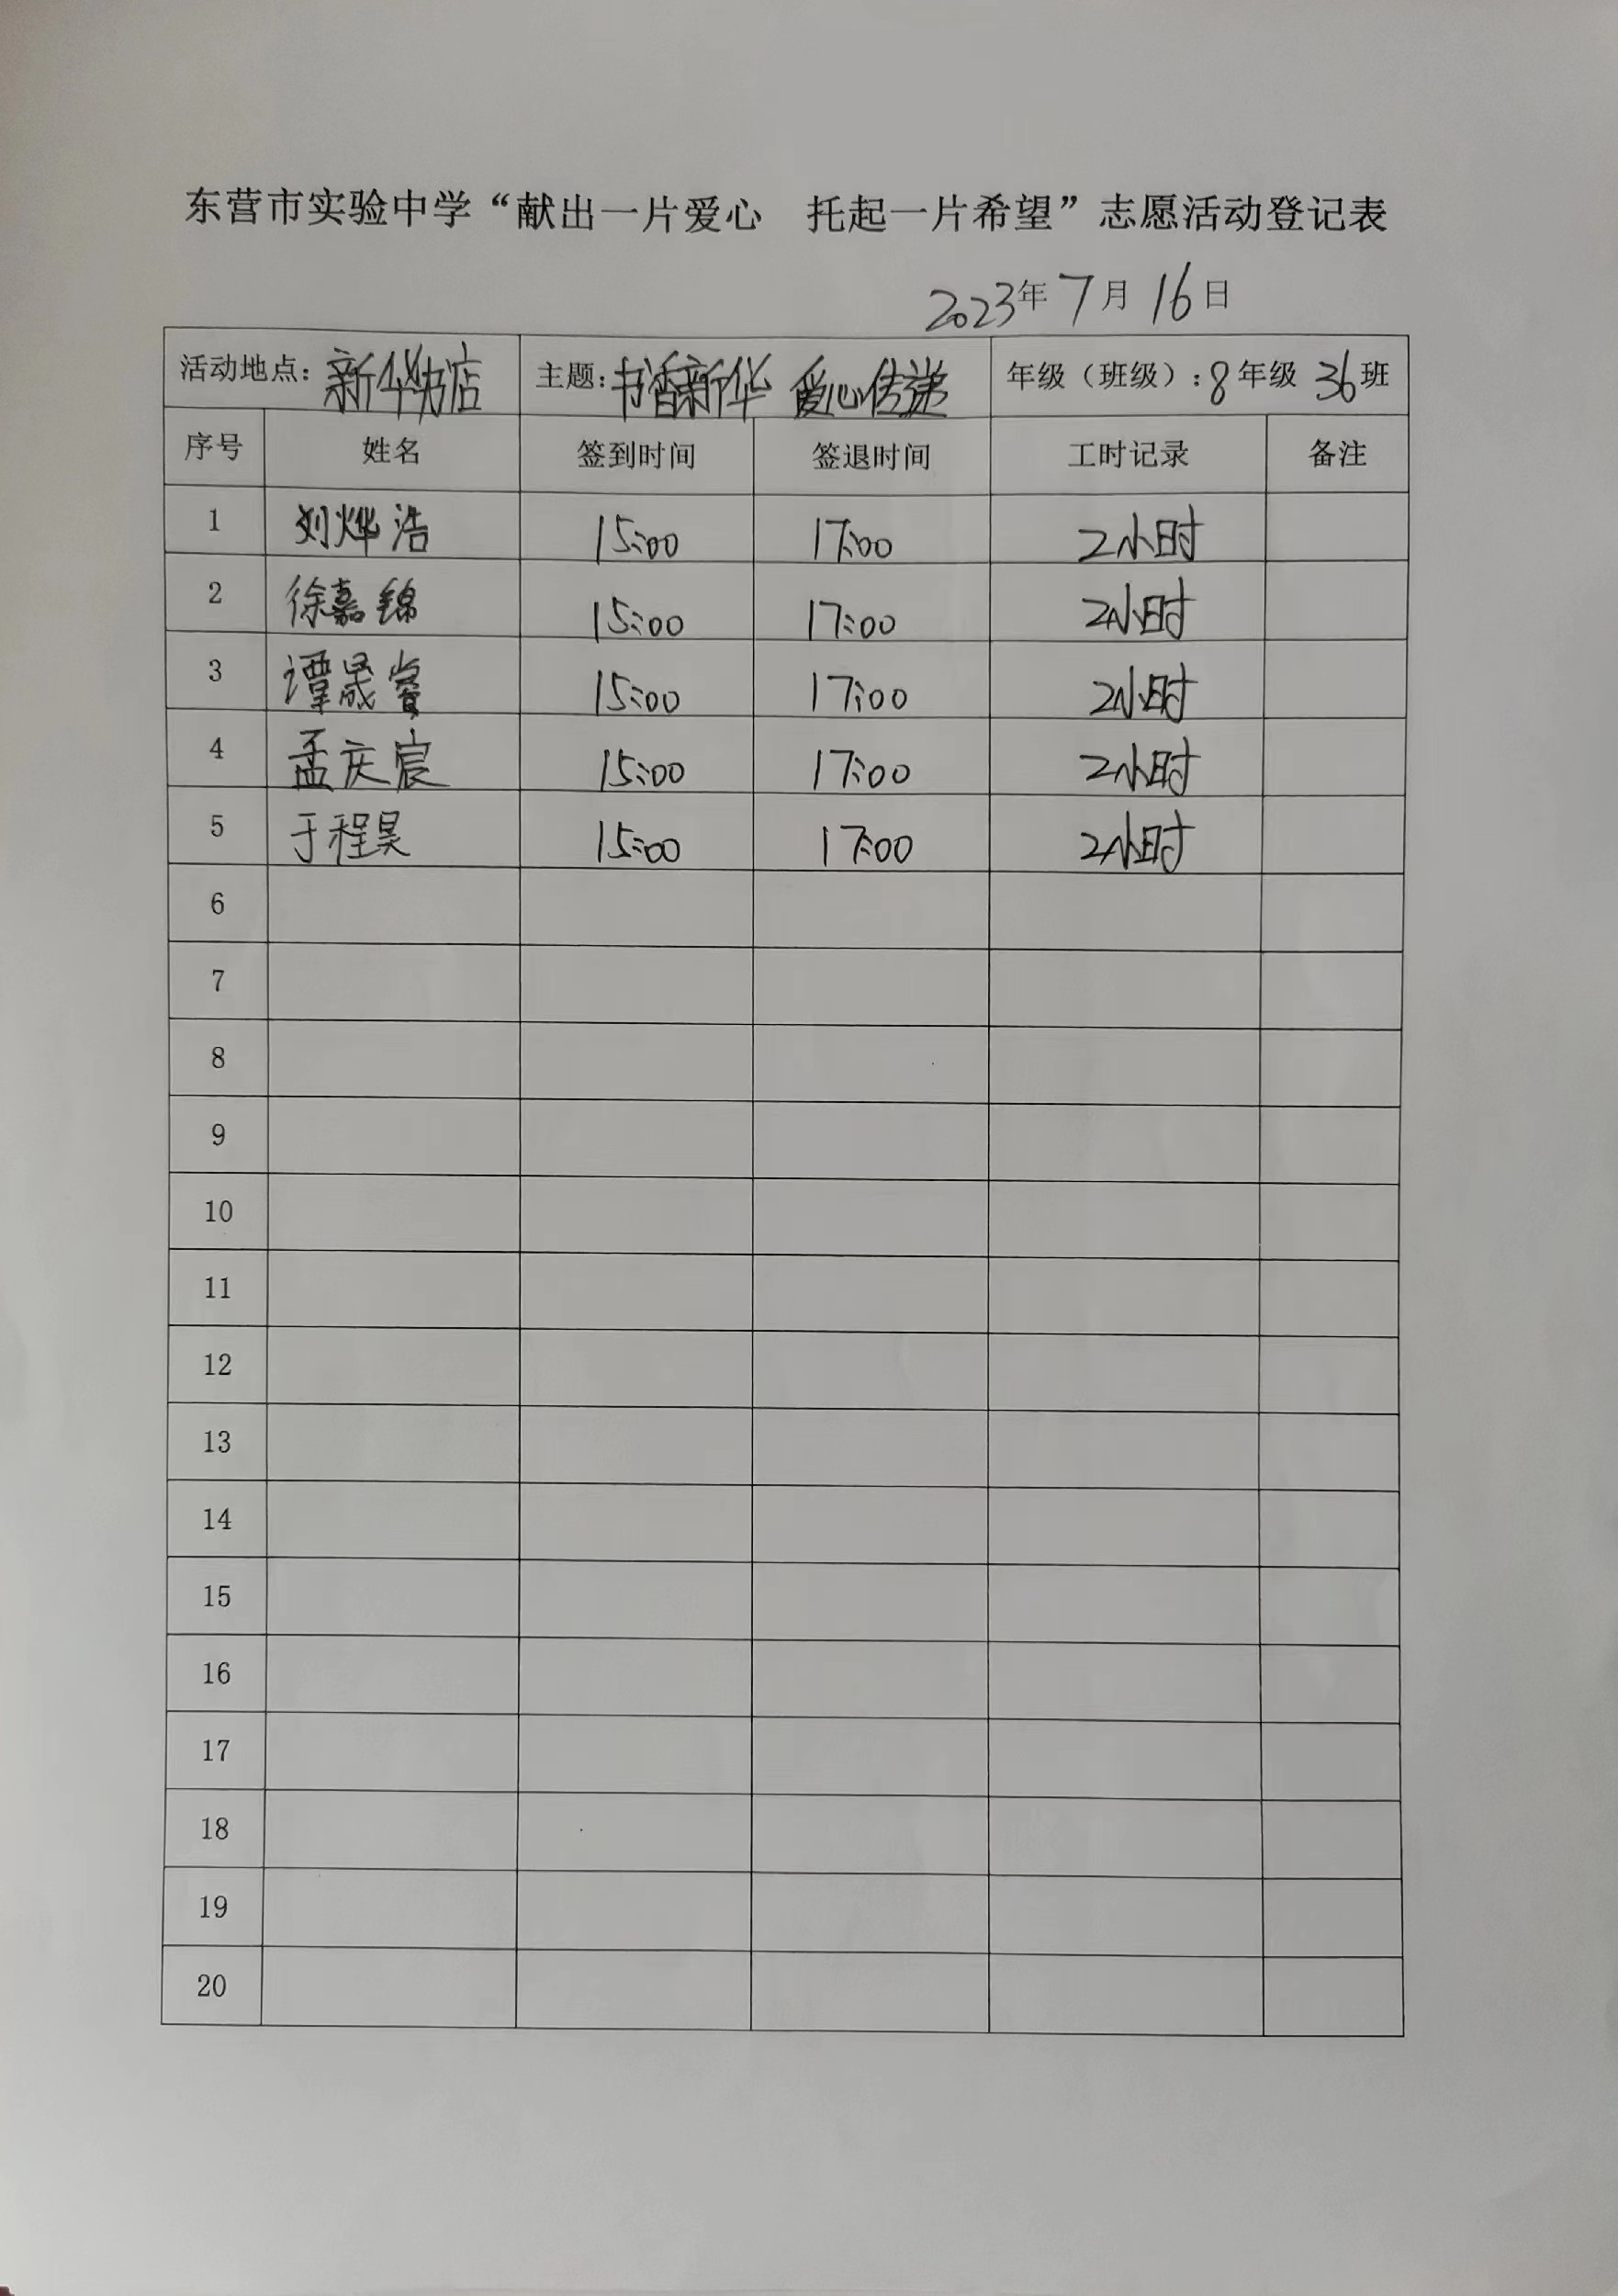 东营市实验中学“献出一片爱心 托起一片希望”志愿活动登记表
2023年7月16日
活动地点：新华书店 主题：书香新华 爱心传递 年级（班级）：8年级 36班
序号 姓名 签到时间 签退时间 工时记录 备注
1 刘烨浩 15:00 17:00 2小时
2 徐嘉锦 15:00 17:00 2小时
3 谭晟睿 15:00 17:00 2小时
4 孟庆宸 15:00 17:00 2小时
5 于程昊 15:00 17:00 2小时
6
7
8
9
10
11
12
13
14
15
16
17
18
19
20